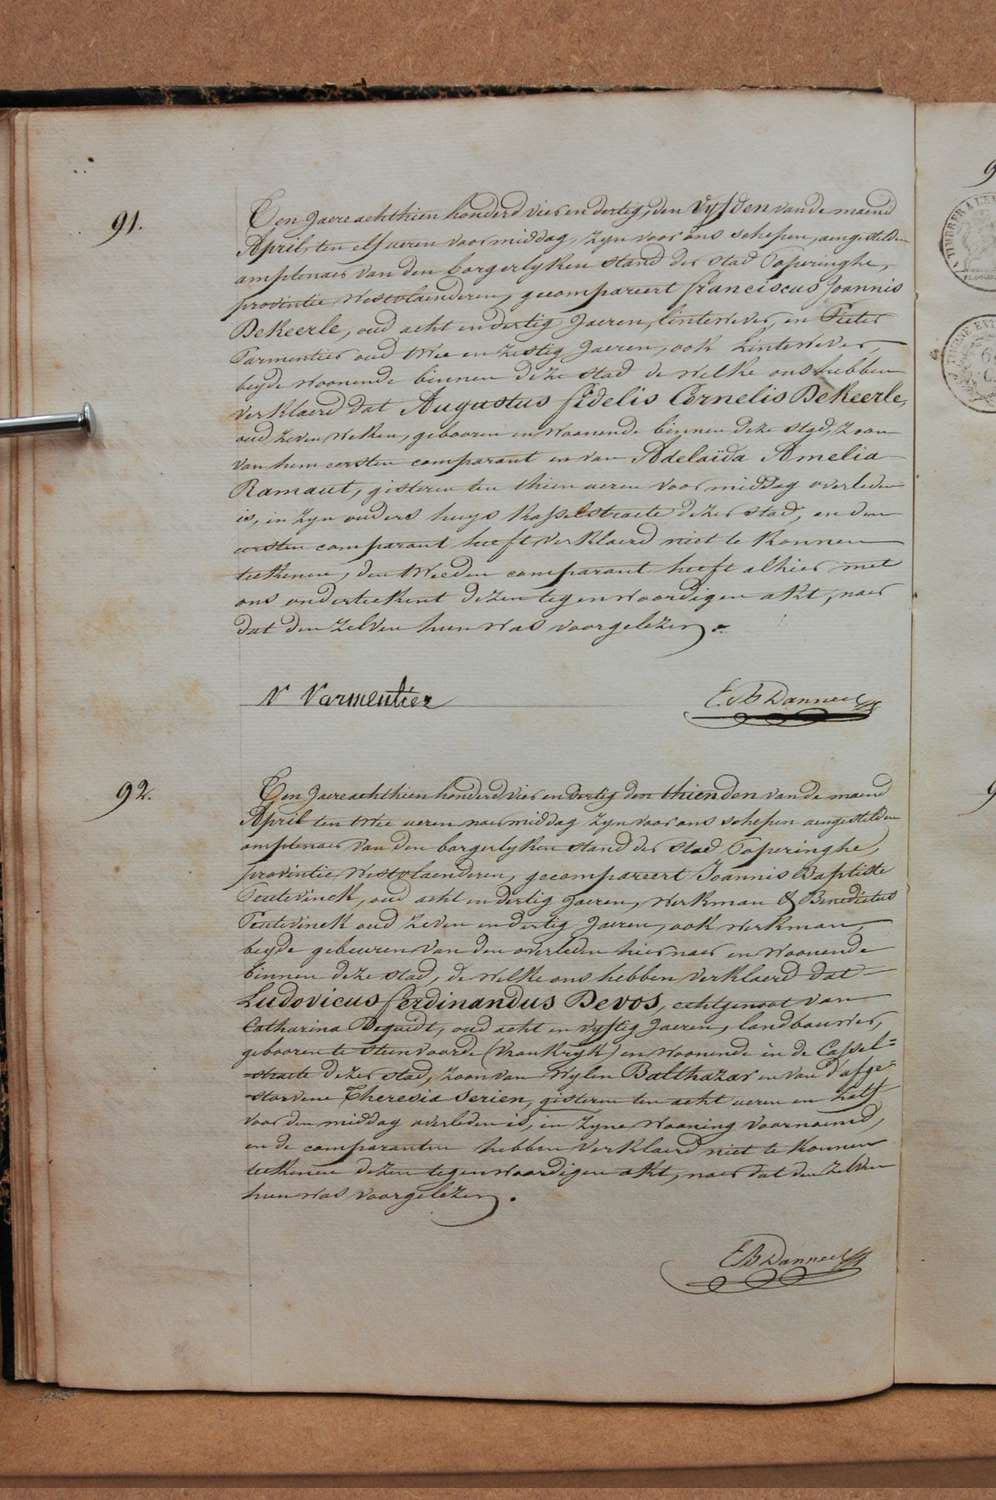 91.
Een Jaere achthien honderd vier en dertig, den Vyfden van de maend
April, ten elf ueren voor middag, zyn voor ons schepen, aengestelden
amptenaer van den borgerlyken stand der stad Poperinghe,
provintie Westvlaenderen, gecompareert Franciscus Joannis
DeKeerle, oud acht en dertig Jaeren, linnewever, en Pieter
Parmentier oud twee en zestig Jaeren, ook linnewever,
beyde woonende binnen deze stad de welke ons hebben
verklaerd dat Augustus Fidelis Cornelis DeKeerle,
oud zeven weken, gebooren en woonende binnen deze stad, zoon
van hem eersten comparant en van Adelaïda Amelia
Ramaut, gisteren ten thien ueren voor middag overleden
is, in zyn ouders huys Kasselstraete dezer stad, en den
eersten comparant heeft verklaerd niet te konnen
teekenen, den tweeden comparant heeft alhier met
ons onderteekent dezen tegenwoordigen akt, naer
dat den zelven hun was voorgelezen.
P Parmentier
E B Danneel
92.
Een Jaere achthien honderd vier en dertig den thienden van de maend
April ten twee ueren naermiddag zyn voor ons schepen aengestelden
amptenaer van den borgerlyken stand der stad Poperinghe,
provintie Westvlaenderen, gecompareert Joannis Baptiste
Peutevinck, oud acht en dertig Jaeren, werkman & Benedictus
Peutevinck oud zeven en dertig Jaeren, ook werkman,
beyde gebeuren van den overleden hier naer en woonende
binnen deze stad, de welke ons hebben verklaerd dat
Ludovicus Ferdinandus Devos, echtgenoot van
Catharina Dequidt, oud acht en vyftig Jaeren, landbouwer,
gebooren te Steenvoorde (Vrankryk) en woonende in de Cassel=
straete dezer stad, zoon van wylen Balthazar en van d'afge=
storvene Theresia Serien, gisteren ten acht ueren en half
voor den middag overleden is, in zyne wooning voornoemd,
en de comparanten hebben verklaerd niet te konnen
teekenen dezen tegenwoordigen akt, naer dat den zelven
hun was voorgelezen.
E B Danneel